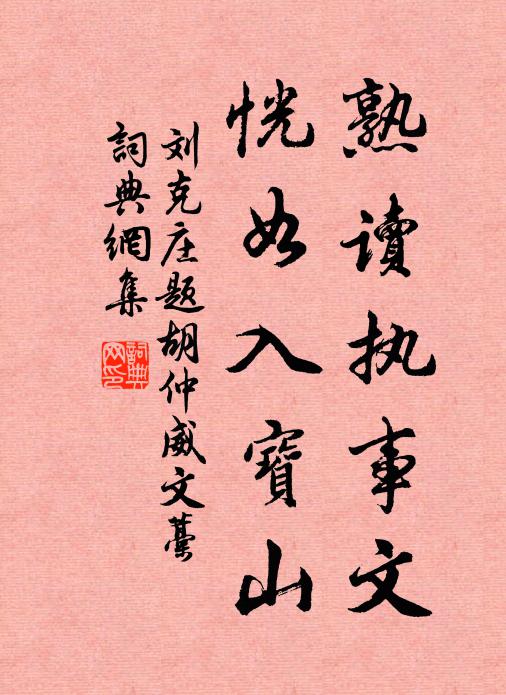 熟读执事文
恍如入寶山
刘克庄题胡仲威文藁
詞典網集
詞典網印